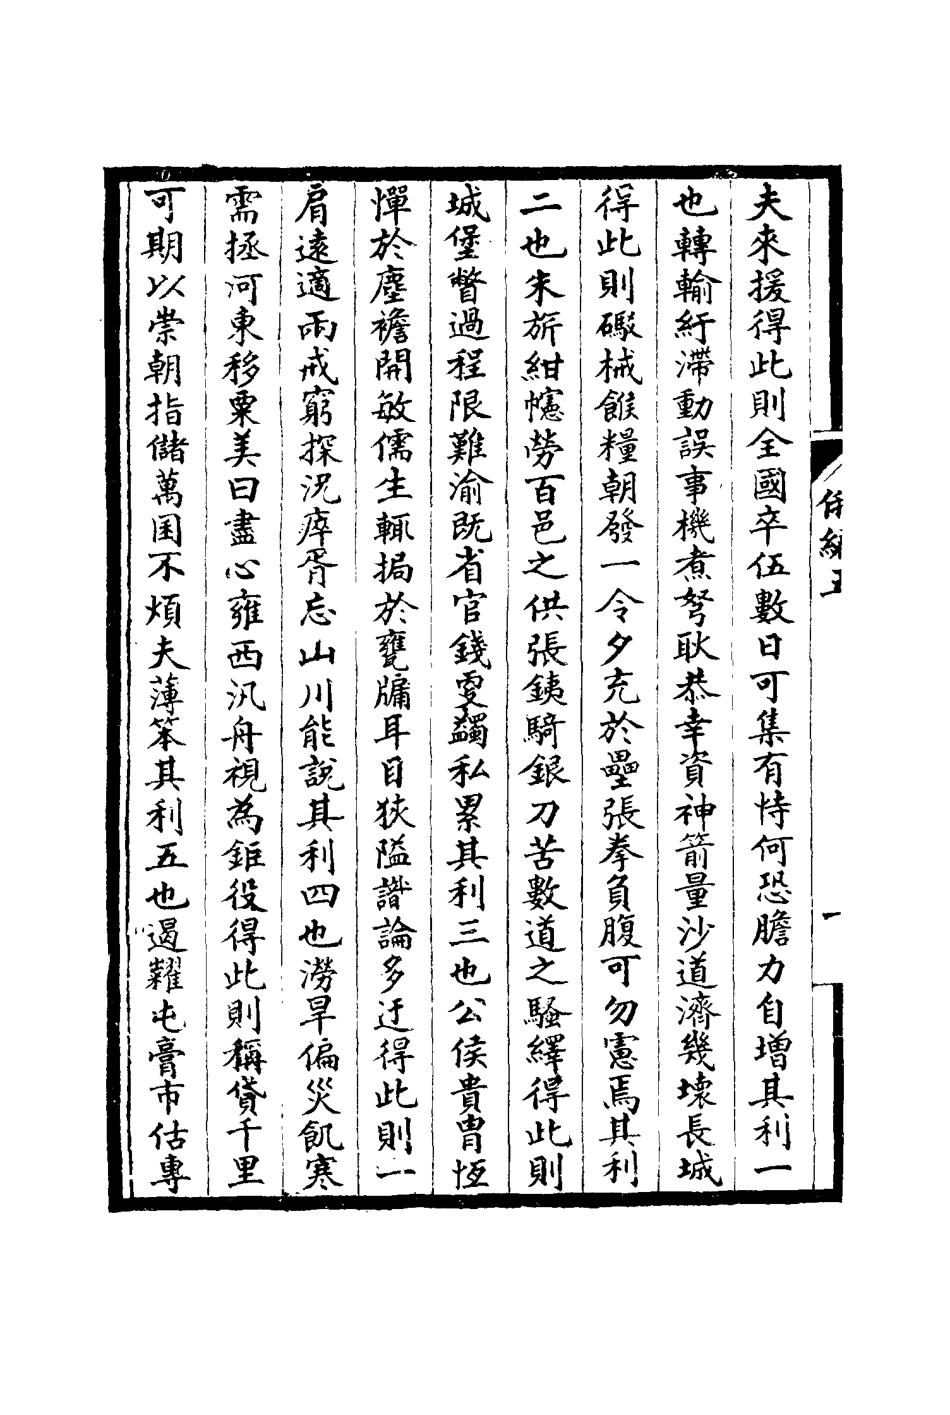 夫來援得此則全國卒伍數日可集有恃何恐膽力自增其利一
也轉輸紆滯動誤事機煮弩耿恭幸資神箭量沙道濟幾壞長城
得此則礮械餱糧朝發一令夕充於壘張拳負腹可勿憲焉其利
二也朱旂紺幰勞百邑之供張銕騎銀刀苦數道之騷繹得此則
城堡瞥過程限難渝既省官錢蠲私累其利三也公侯貴胄恆
憚於塵襜開敏儒生輒挶於甕牖耳目狹隘議論多迂得此則一
肩遠適兩戒窮探況瘁胥忘山川能說其利四也澇旱偏災飢寒
需拯河東移粟美曰盡心雍西汎舟視為鉅役得此則稱貸千里
可期以崇朝指儲萬囷不煩夫薄笨其利五也遏糴屯膏市估專
五
一